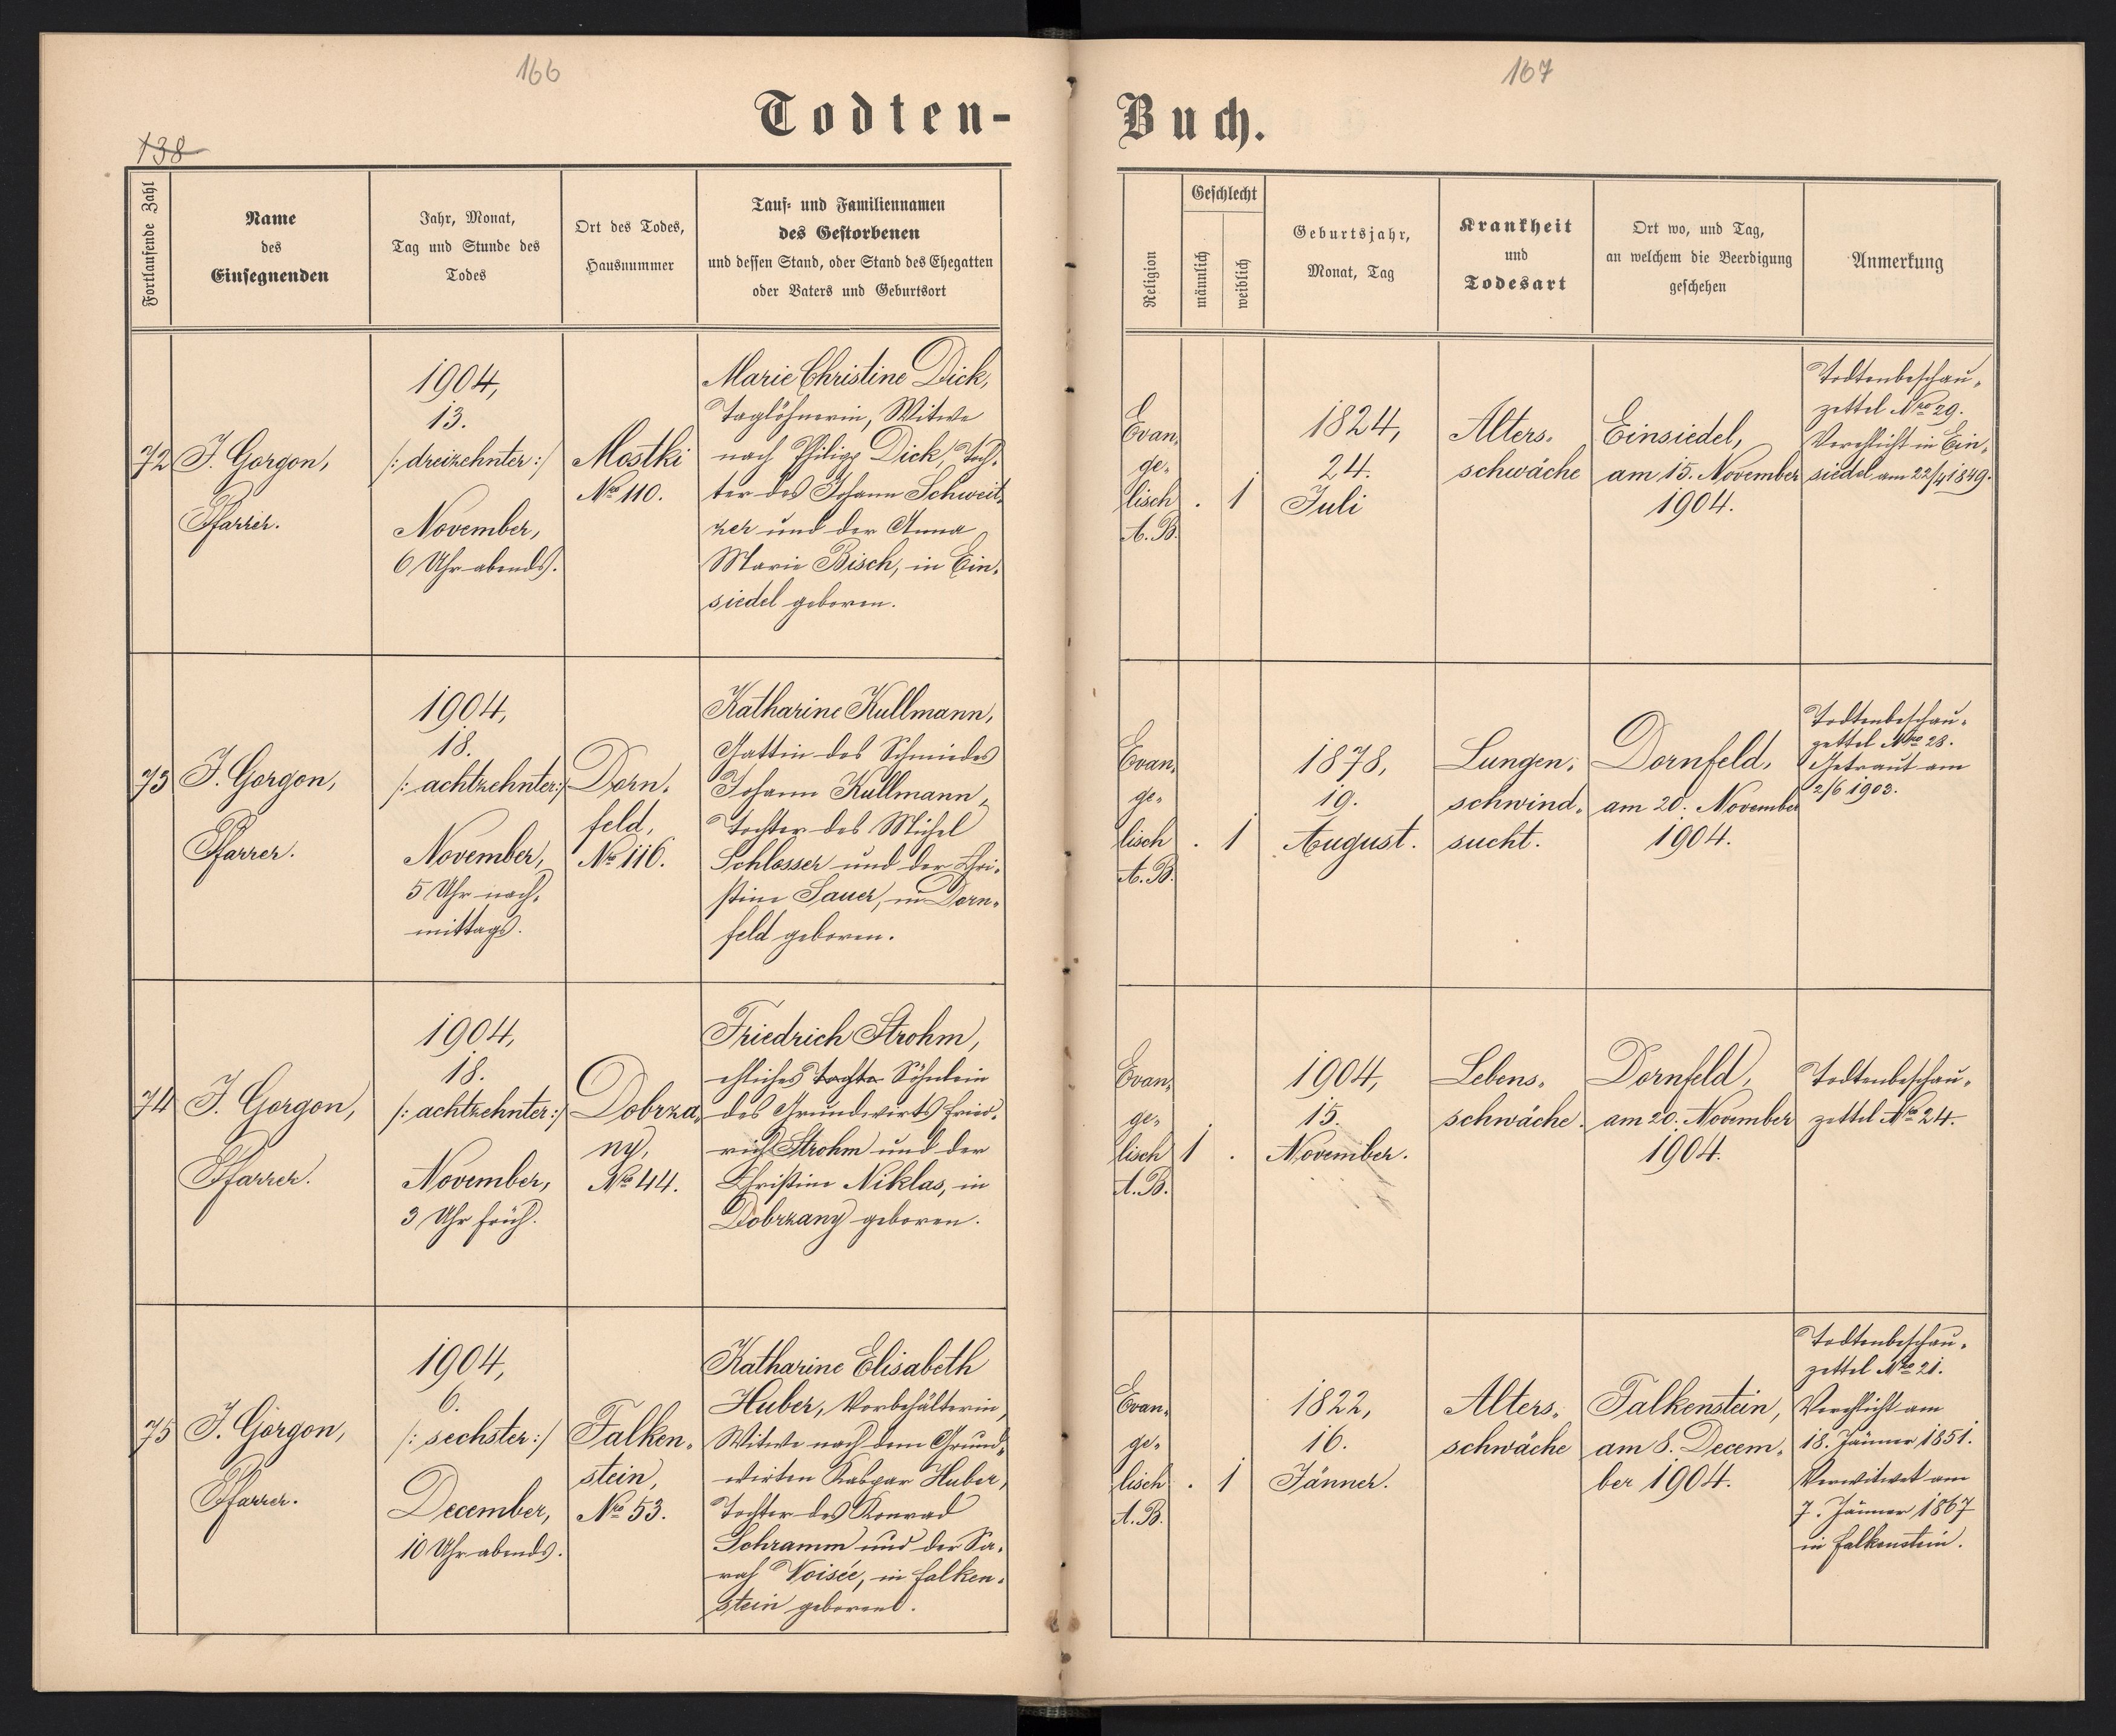 166
167
Todten-
Buch.
138
Fortlaufende Zahl
Name
des
Einsegnenden
Jahr, Monat,
Tag und Stunde des
Todes
Ort des Todes,
Hausnummer
Tauf- und Familiennamen
des Gestorbenen
und dessen Stand, oder Stand des Ehegatten
oder Vaters und Geburtsort
Religion
Geschlecht
männlich
weiblich
Geburtsjahr,
Monat, Tag
Krankheit
und
Todesart
Ort wo, und Tag,
an welchem die Beerdigung
geschehen
Anmerkung
72
J. Gorgon,
Pfarrer.
1904,
13.
/: dreizehnter :/
November,
6 Uhr abends.
Mostki
Nro 110.
Marie Christine Dick,
Taglöhnerin, Witwe
nach Philipp Dick, Toch-
ter des Johann Schweit-
zer und der Anna
Marie Bisch, in Ein-
siedel geboren.
Evan-
ge-
lisch
A. B.
.
1
1824,
24.
Juli
Alters-
schwäche
Einsiedel,
am 15. November
1904.
Todtenbeschau-
zettel Nro 29.
Verehlicht in Ein-
siedel am 22/4 1849.
73
J. Gorgon,
Pfarrer.
1904,
18.
/: achtzehnter :/
November,
5 Uhr nach-
mittags.
Dorn-
feld,
Nro 116.
Katharine Kullmann,
Gattin des Schmiedes
Johann Kullmann,
Tochter des Michel
Schlosser und der Chri-
stine Sauer, in Dorn-
feld geboren.
Evan-
ge-
lisch
A. B.
.
1
1878,
19.
August.
Lungen-
schwind-
sucht.
Dornfeld,
am 20. November
1904.
Todtenbeschau-
zettel Nro 23.
Getraut am
2/6 1903.
74
J. Gorgon,
Pfarrer.
1904,
18.
/: achtzehnter :/
November,
3 Uhr früh.
Dobrza-
ny,
Nro 44.
Friedrich Strohm,
ehliches Tochter Söhnlein
des Grundwirts Fried-
rich Strohm und der
Christine Niklas, in
Dobrzany geboren.
Evan-
ge-
lisch
A. B.
1
.
1904,
15.
November.
Lebens-
schwäche.
Dornfeld,
am 20. November
1904.
Todtenbeschau-
zettel Nro 24.
75
J. Gorgon,
Pfarrer.
1904,
6.
/: sechster :/
December,
10 Uhr abends.
Falken-
stein,
Nro 53.
Katharine Elisabeth
Huber, Vorbehälterin,
Witwe nach dem Grund-
wirten Kaspar Huber,
Tochter des Konrad
Schramm und der Sa-
rah Voisée, in Falken-
stein geboren.
Evan-
ge-
lisch
A. B.
.
1
1822,
16.
Jänner.
Alters-
schwäche
Falkenstein,
am 8. Decem-
ber 1904.
Todtenbeschau-
zettel Nro 21.
Verehlicht am
18. Jänner 1851.
Verwitwet am
7. Jänner 1867
in Falkenstein.